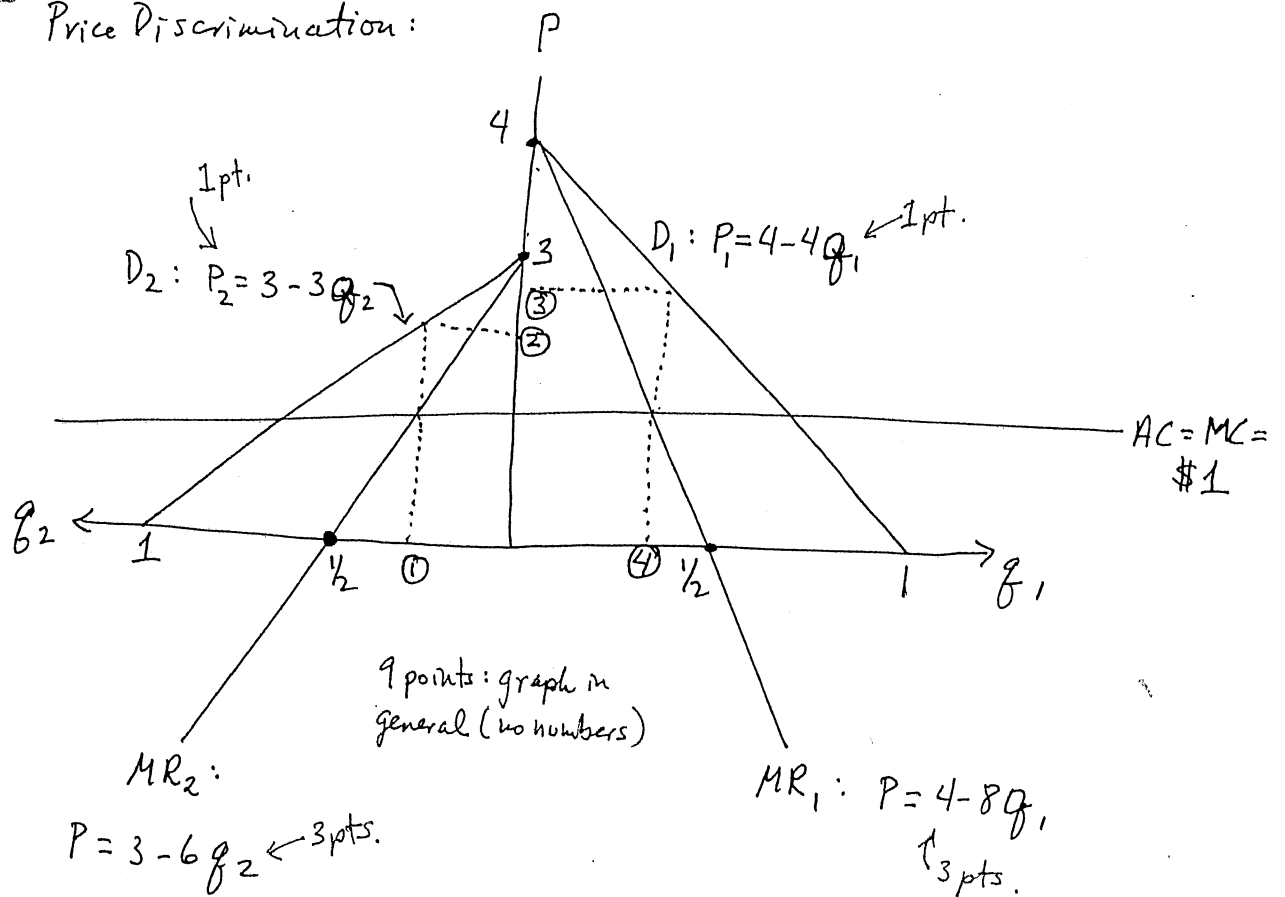 Price Discrimination:
P
4
1pt.
3
D₁: P₁=4-4q₁ ← 1pt.
D₂: P₂=3-3q₂
③
②
AC=MC=
$1
q₂
1
½
①
④
½
1
q₁
9 points: graph in
general (no numbers)
MR₂:
P=3-6q₂ ← 3pts.
MR₁: P=4-8q₁
3pts.